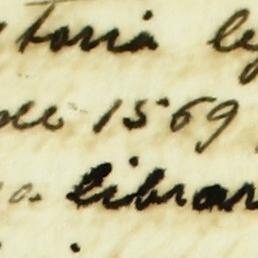 toria le
1569
a. librar